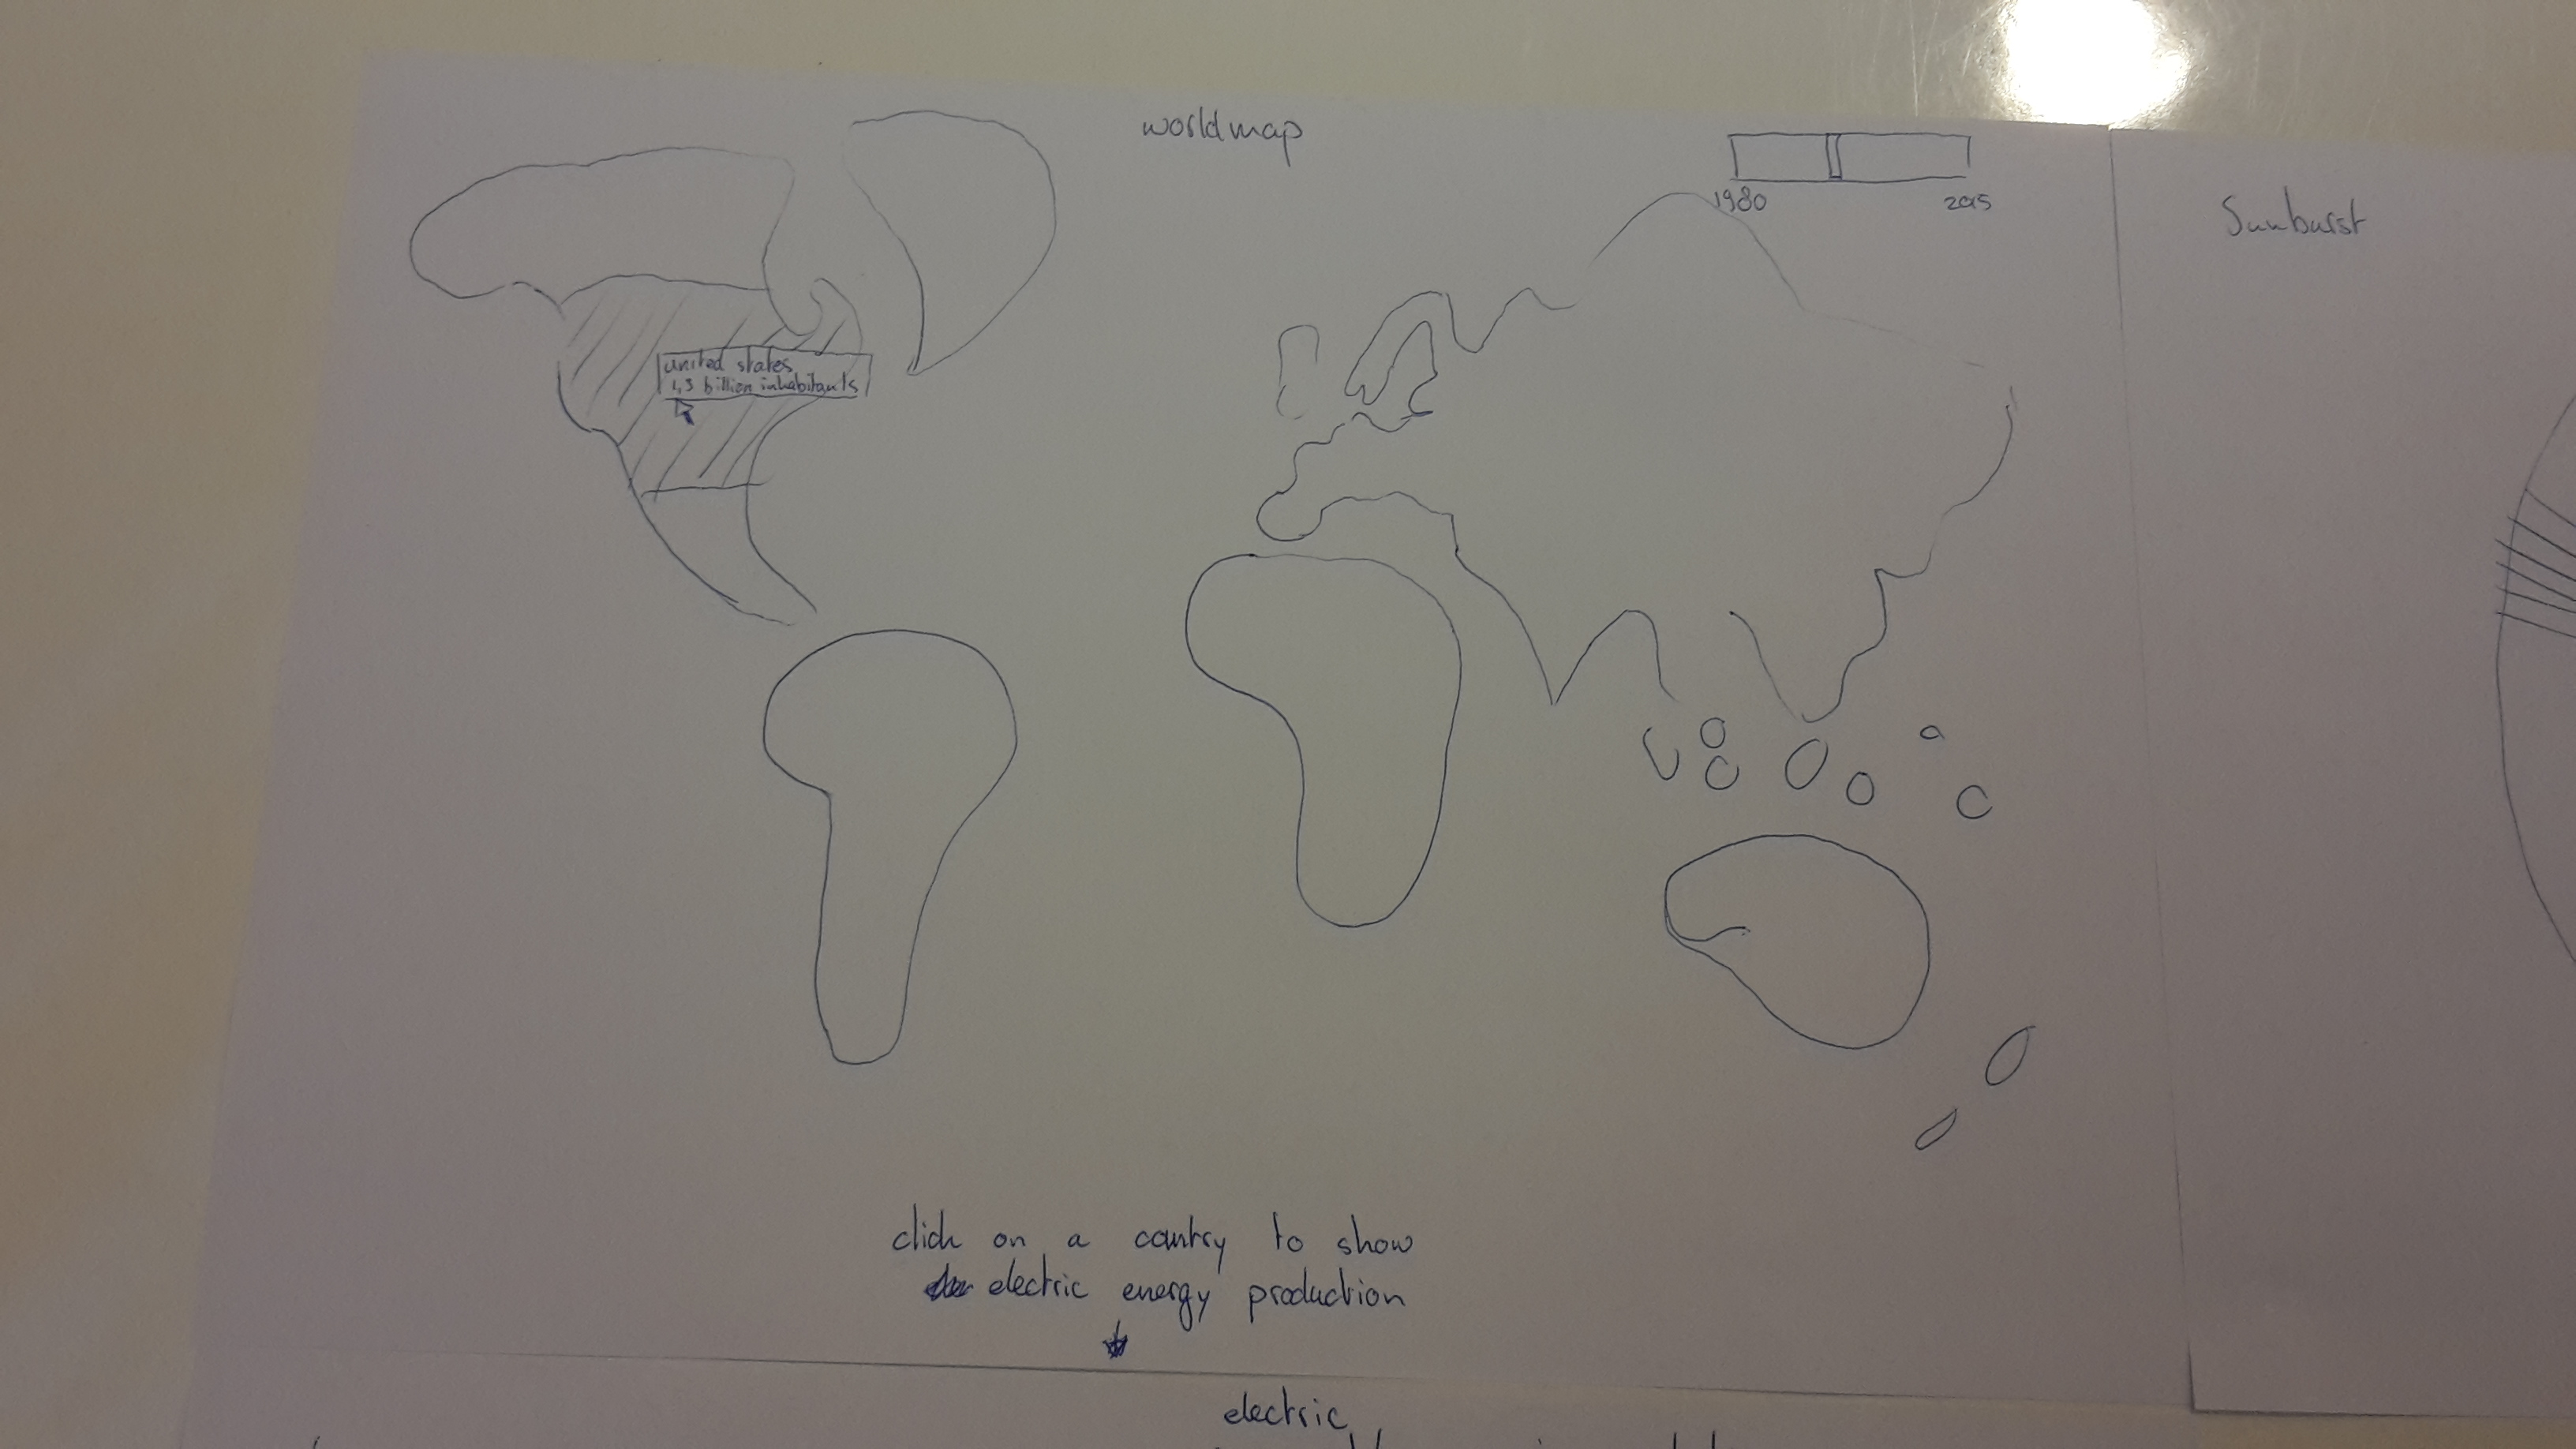 worldmap
1980
2015
Sunburst
united states
1,3 billion inhabitants
click on a country to show
electric energy production
electric